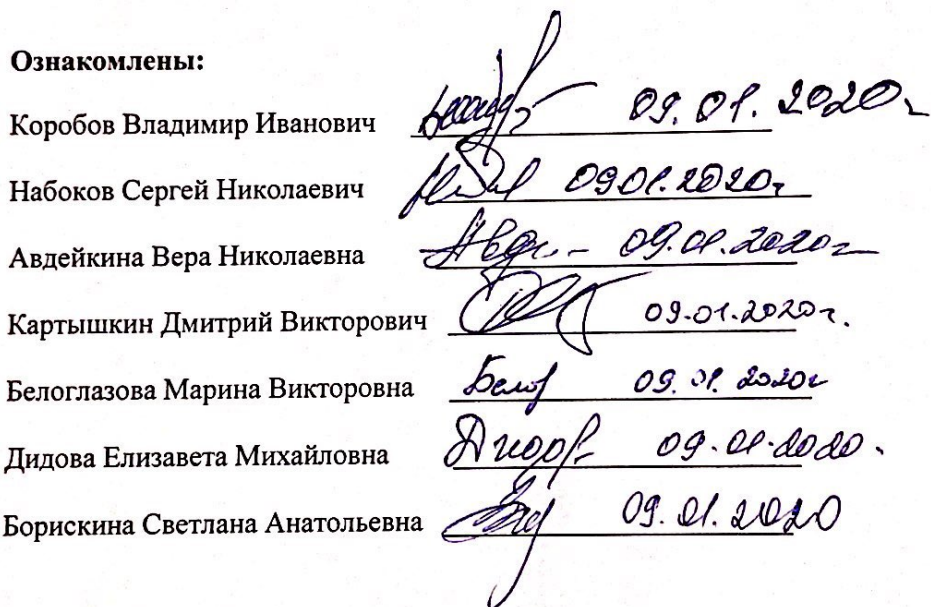 Ознакомлены:
Коробов Владимир Иванович 09.01.2020г
Набоков Сергей Николаевич 09.01.2020г
Авдейкина Вера Николаевна 09.01.2020г
Картышкин Дмитрий Викторович 09.01.2020г.
Белоглазова Марина Викторовна Белог 09.01.2020г
Дидова Елизавета Михайловна 09.01.2020.
Борискина Светлана Анатольевна 09.01.2020